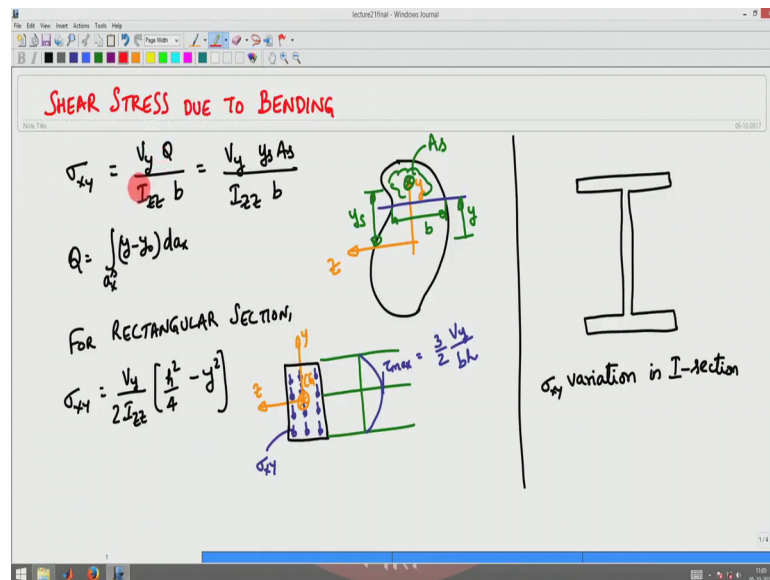 lecture21final - Windows Journal
File Edit View Insert Actions Tools Help
Page Width
B I
SHEAR STRESS DUE TO BENDING
Note Title
05-10-2017
σxy = Vy Q / Izz b = Vy ys As / Izz b
Q = ∫ax^s (y-y0) dax
FOR RECTANGULAR SECTION,
σxy = Vy / 2Izz [h²/4 - y²]
As
y
ys
b
y
z
y
z
CG
σxy
τmax = 3/2 Vy/bh
σxy variation in I-section
1
1/4
11:05